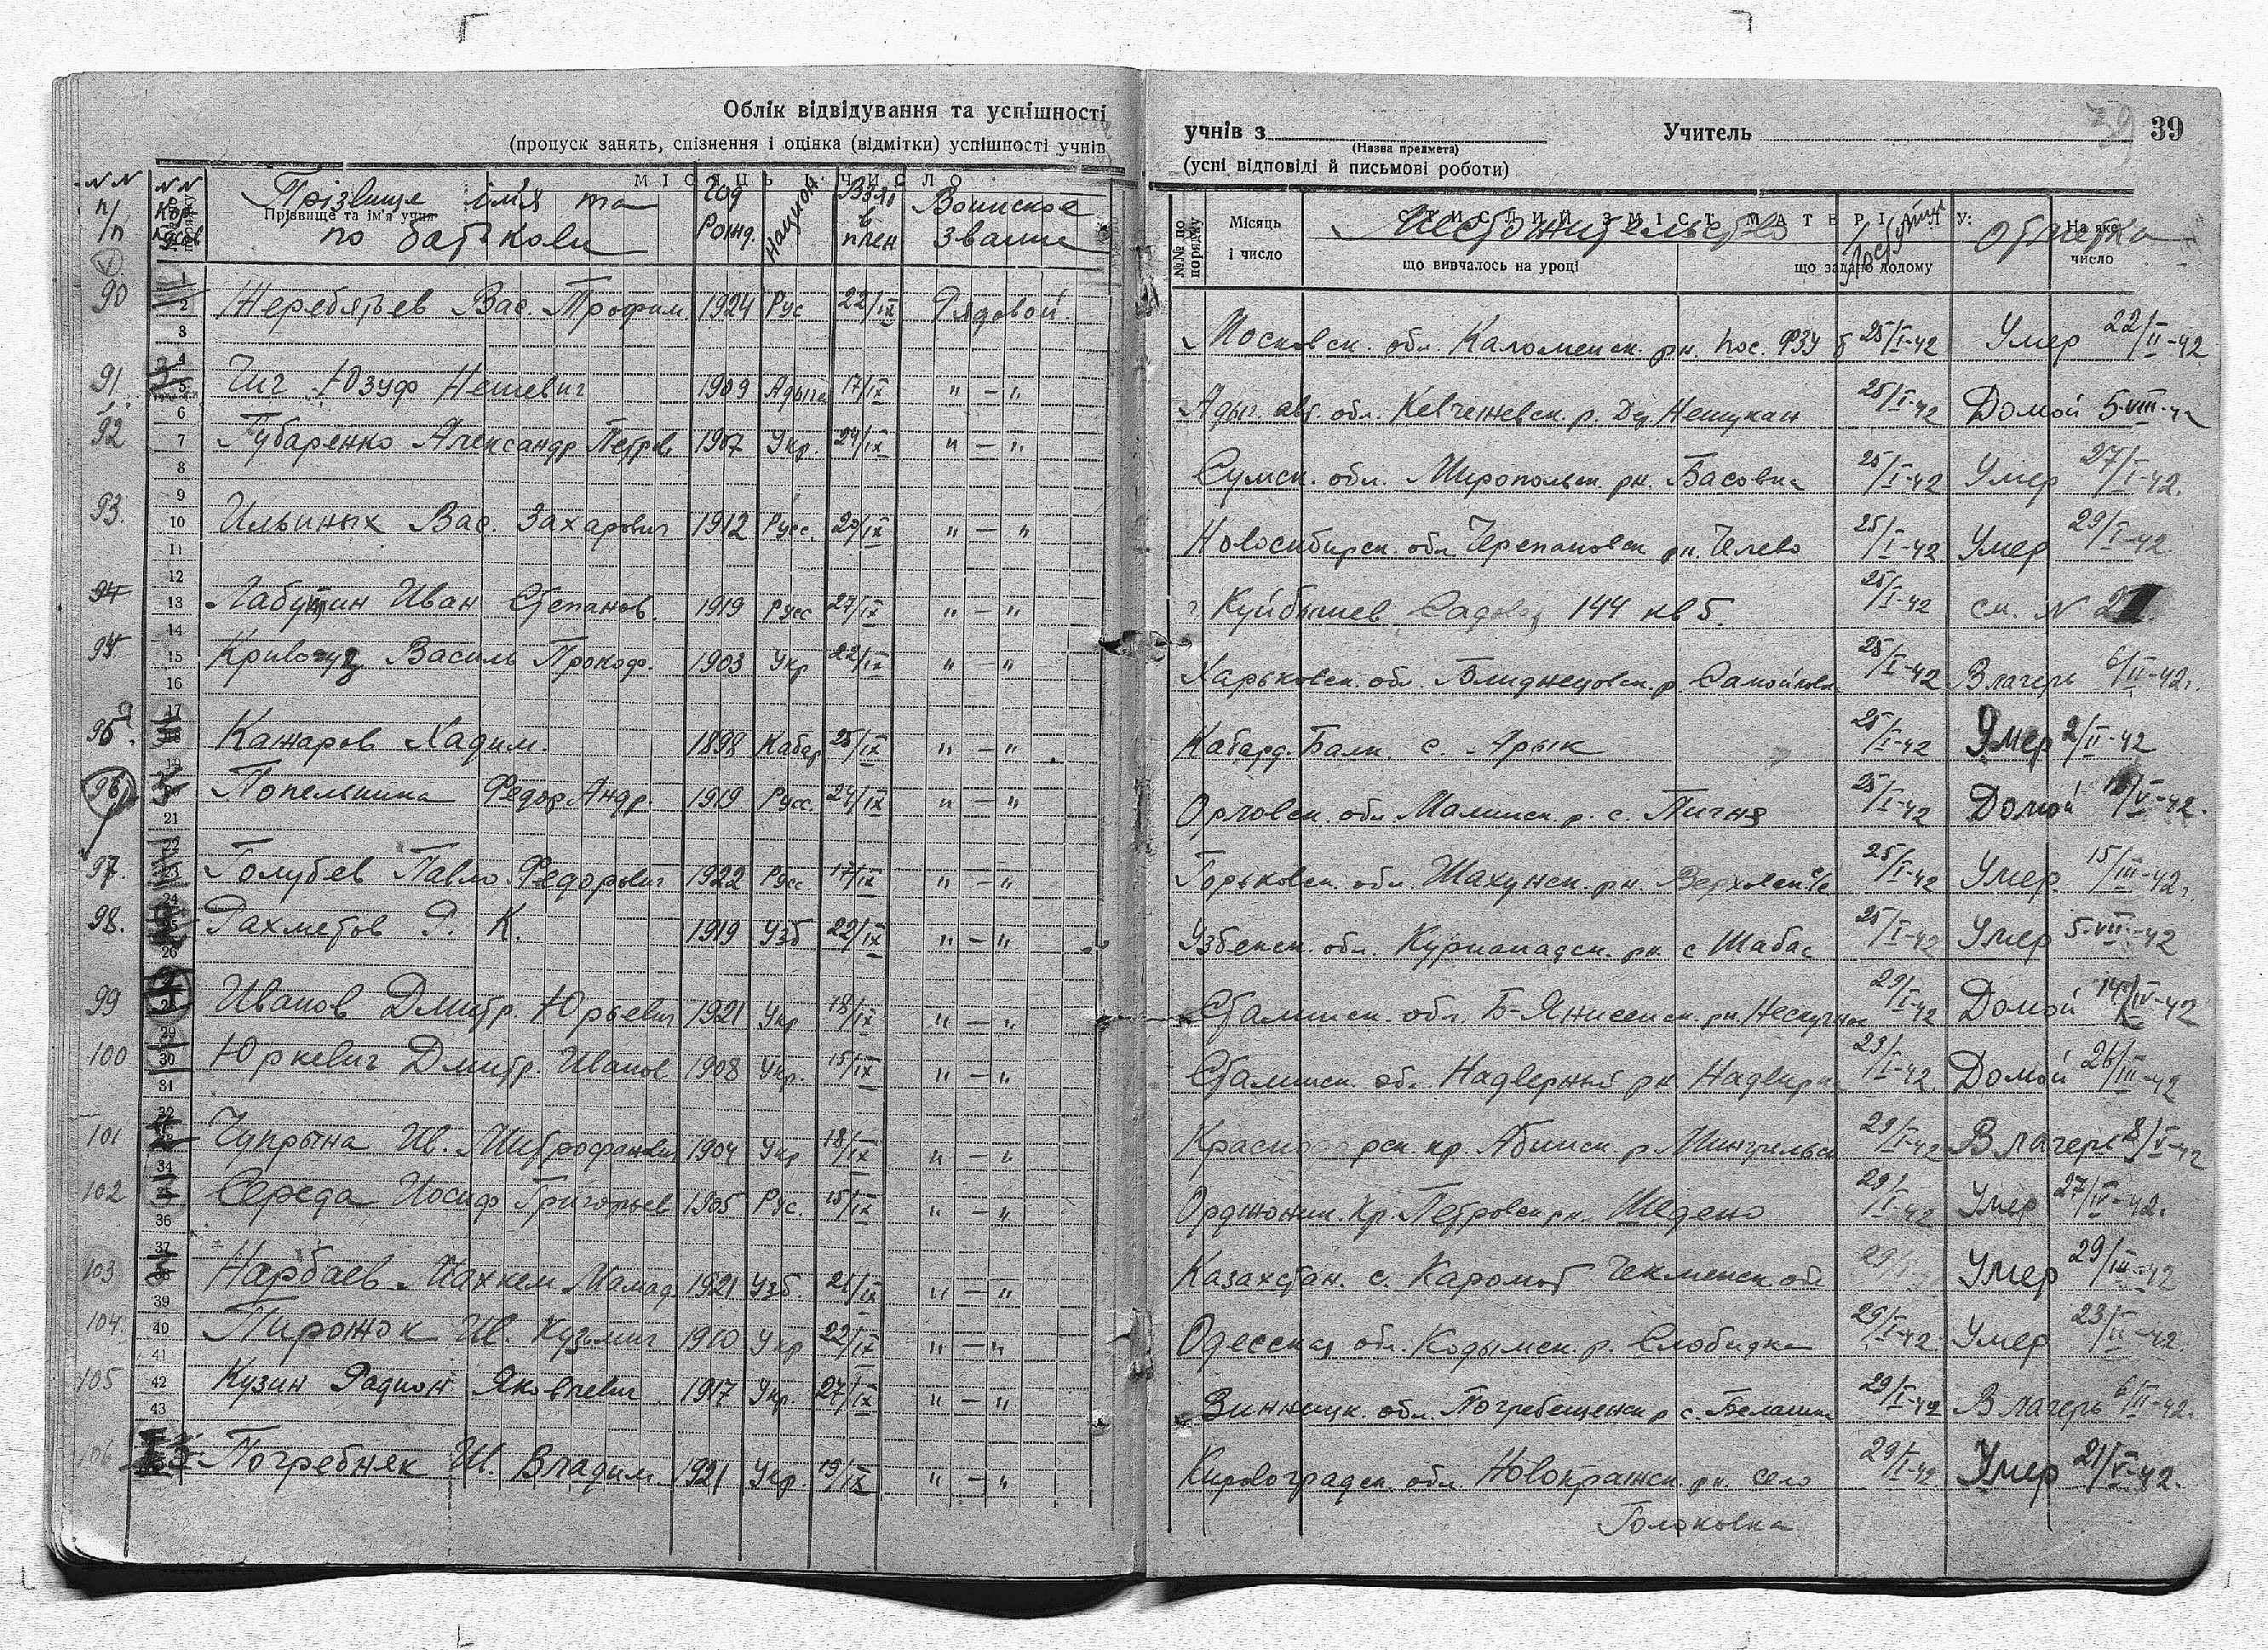 Облік відвідування та успішності
(пропуск занять, спізнення і оцінка (відмітки) успішності учнів
учнів з Учитель 39
(Назва предмета)
(усні відповіді й письмові роботи)
N N п/п N N Прізвище ім'я та по батькови Год Рожд. национ. Взят в плен Воинское звание
МІСЯЦЬ ЧИСЛО
Прізвище та ім'я учня
№№ по порядку Місяць і число Местожительство Поступил Отметка
СТИСЛИЙ ЗМІСТ МАТЕРІАЛУ: На яке число
що вивчалось на уроці що задано додому
90 Жеребятьев Вас. Трофим. 1924 Рус 22/IX Рядовой. Московск. обл. Каломенск. рн. пос. РЗУ 25/I-42 Умер 22/II-42
91 Чич Юзуф Нешевич 1909 Адыгей 17/IX " – " Адыг. авт. обл. р. Нешукай 25/I-42 Домой 5-VIII-42
92 Губаренко Александр Петров 1907 Укр. 24/IX " – " Сумск. обл. Миропольск. рн. Басовка 25/I-42 Умер 27/I-42.
93. Ильиных Вас. Захарович 1912 Русс. 20/IX " – " Новосибирск. обл Черепановск рн. Челево 25/I-42 Умер 29/I-42
94 Лабутин Иван Степанов. 1919 Русс 27/IX " – " Куйбышев Садовая 144 кв 5. 25/I-42 см. N
Василь Прокоф. 1903 Укр 22/IX " – " Харьковск. обл. Близнецовск. р 25/I-42 В лагерь 6/II-42.
95 Кажаров Хадим. 1898 Кабар 25/IX " – " Кабард. Балк. с. Арык 25/I-42 Умер 2/II-42
96 Федор Андр. 1919 Русс. 24/IX " – " Орловск. обл р. с. 25/I-42 Домой /V-42.
97. Голубев Павло Федорович 1922 Русс 17/IX " – " Горьковск. обл. Шахунск. рн 25/I-42 Умер 15/III-42.
98. Рахметов Р. К. 1919 Узб 22/IX " – " Узбекск. обл. рн. с Шабас 25/I-42 Умер 5-VII-42
99 Иванов Дмитр. Юрьевич 1921 Укр 18/IX " – " Сталинск. обл. Б-Янисельск. рн. 29/I-42 Домой 14/IV-42
100 Юркевич Дмитр. Иванов 1908 Укр. 15/IX " – " Сталинск. обл. Надверный рн 23/I-42. Домой 26/III-42
101 Чупрына Ив. Митрофанович 1904 Укр 18/IX " – " кр. Абинск. р. 29/I-42 В лагерь 8/V-42
102 Середа Иосиф Григорьев 1905 Рус. 15/IX " – " Орджоник. Кр. Петровск рн. Шедено 29/I-42 Умер 27/IV-42.
103 Нарбаев Махкем Мамад. 1921 Узб. 21/IX " – " Казахстан. с. 29/I Умер 29/III-42
104. Пирожок Ив. Кузьмич 1910 Укр 22/IX " – " Одесская обл. Кодымск. р. Слободка 29/I-42 Умер 23/II-42
105 Кузин Радион Яковлевич 1917 Укр. 27/IX " – " Винницк. обл. Погребещенск р с. 29/I-42 В лагерь 6/II-42.
106 Погребняк И. Владим. 1921 Укр. 19/IX " – " Кировоградск. обл. Новопражск. рн. село 29/I-42. Умер 21/V-42.
Головковка